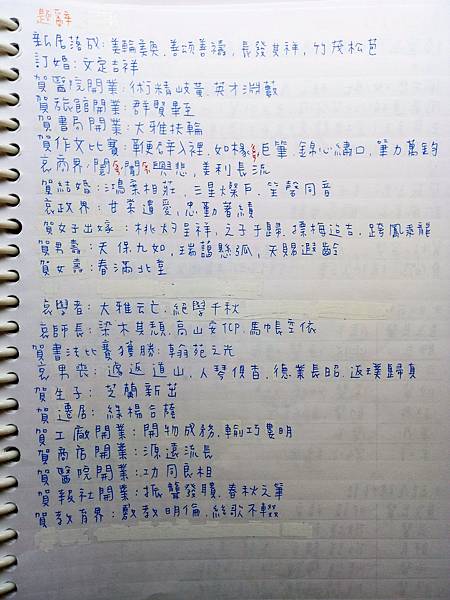 題辭
新居落成:美輪美奐、善頌善禱、長發其祥,竹茂松苞
訂婚:文定吉祥
賀醫院開業:術精岐黃、英才淵藪
賀旅館開業:群賢畢至
賀書局開業:大雅扶輪
賀作文比賽:鞭辟入裡,如椽巨筆,錦心繡口,筆力萬鈞
哀商界:闤闠興悲,美利長流
賀結婚:鴻案相莊,三星燦戶,笙磬同音
哀政界:甘棠遺愛,忠勤著績
賀女子出嫁:桃夭呈祥,之子于歸,摽梅迨吉,跨鳳乘龍
賀男壽:天保九如,瑞藹懸弧,天賜遐齡
賀女壽:春滿北堂
哀學者:大雅云亡、絕學千秋
哀師長:梁木其頹,高山安仰、馬帳空依
賀書法比賽獲勝:翰苑之光
哀男喪:遽返道山,人琴俱杳,德業長昭,返璞歸真
賀生子:芝蘭新茁
賀遷居:綠楊合蔭
賀工廠開業:開物成務,輸巧費明
賀商店開業:源遠流長
賀醫院開業:功同良相
賀報社開業:振聾發聵,春秋之筆
賀教育界:敷教明倫,絃歌不輟